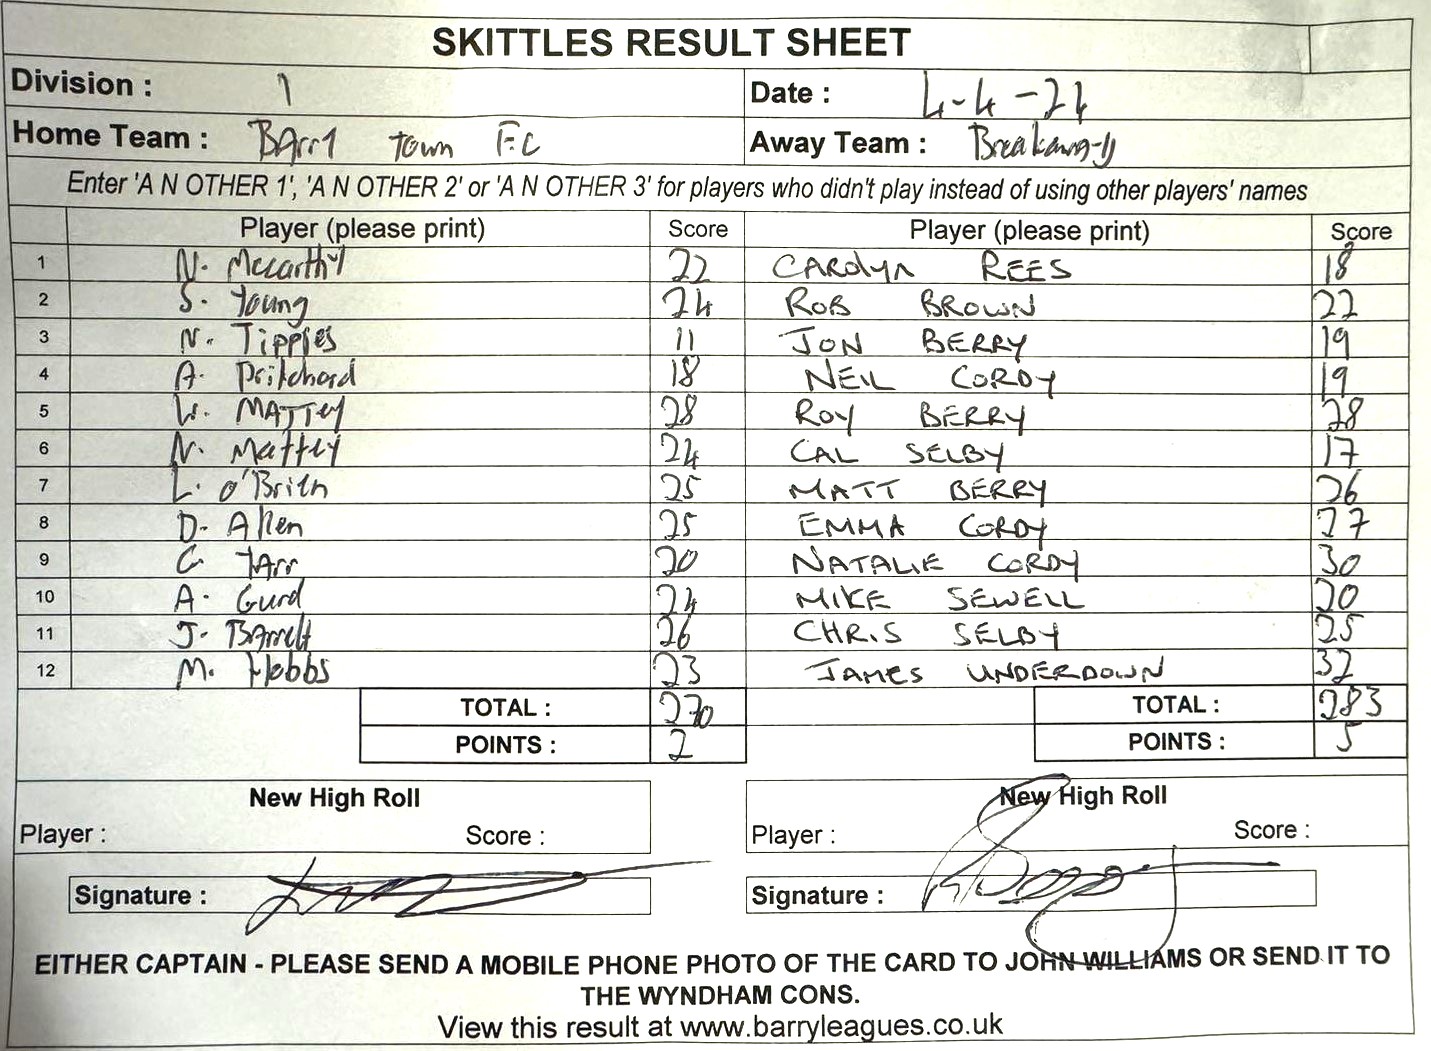 SKITTLES RESULT SHEET
Division : 1 Date : 4-4-24
Home Team : BArry town F.C Away Team : Breakaway
Enter 'A N OTHER 1', 'A N OTHER 2' or 'A N OTHER 3' for players who didn't play instead of using other players' names
Player (please print) Score Player (please print) Score
1 N. Mccarthy 22 CAROlyn REES 18
2 S. Young 24 ROB BROWN 22
3 N. Tipples 11 JON BERRY 19
4 A. Pritchard 18 NEIL CORDY 19
5 W. MATTEY 28 ROY BERRY 28
6 N. Mattey 24 CAL SELBY 17
7 L. O'Brien 25 MATT BERRY 26
8 D. Allen 25 EMMA CORDY 27
9 C. tArr 20 NATALIE CORDY 30
10 A. Gurd 24 MIKE SEWELL 20
11 J. BArrett 26 CHRIS SELBY 25
12 M. Hobbs 23 JAMES UNDERDOWN 32
TOTAL : 270 TOTAL : 283
POINTS : 2 POINTS : 5
New High Roll New High Roll
Player : Score : Player : Score :
Signature : Signature :
EITHER CAPTAIN - PLEASE SEND A MOBILE PHONE PHOTO OF THE CARD TO JOHN WILLIAMS OR SEND IT TO
THE WYNDHAM CONS.
View this result at www.barryleagues.co.uk